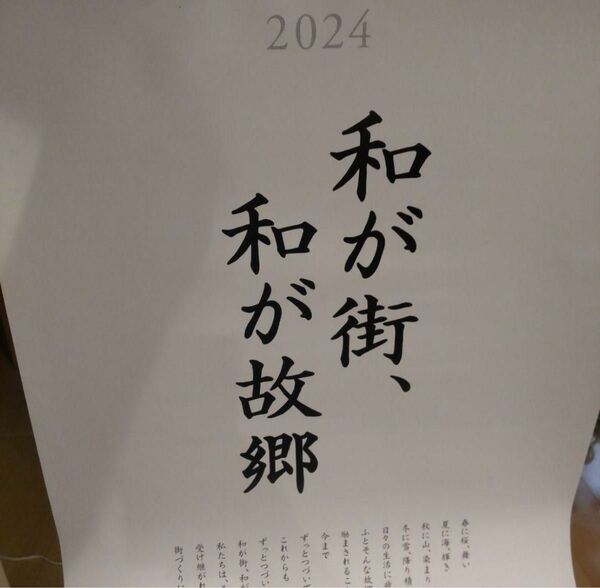 2024
和が街、
和が故郷
春に桜、舞い
夏に海、輝き
秋に山、染ま
冬に雪、降り積
日々の生活に
ふとそんな故
励まされるこ
今まで
ずっとつづいて
これからも
ずっとつづい
和が街、和が
私たちは、
受け継がれ
街づくりに